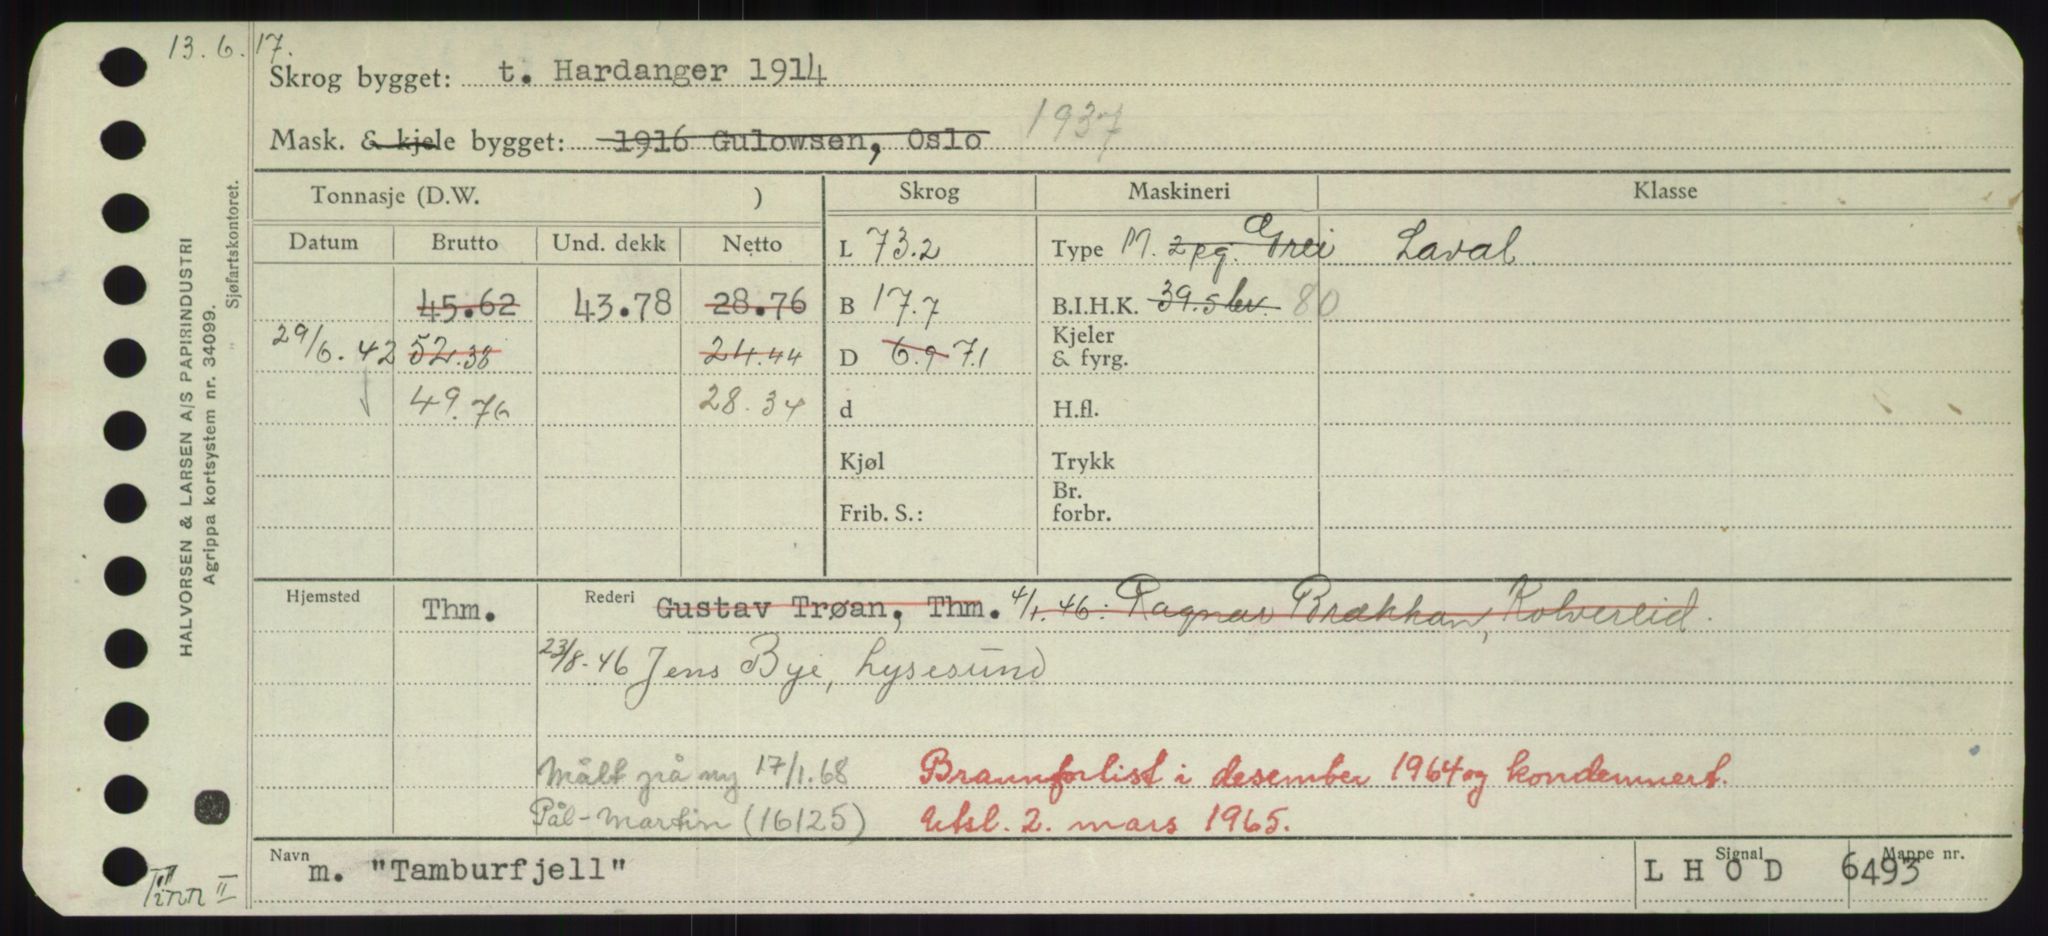 13. 6. 17.
Skrog bygget: t. Hardanger 1914
Mask. & kjele bygget: 1916 Gulowsen, Oslo 1937
Tonnasje (D.W. ) Skrog Maskineri Klasse
Datum Brutto Und. dekk Netto L 73.2 Type M. 2 pg. Grei Laval
45.62 43.78 28.76 B 17.7 B.I.H.K. 39.5 lev. 80
29/6. 42 52.38 24.44 D 6.9 7.1 Kjeler & fyrg.
49.76 28.34 d H.fl.
Kjøl Trykk
Frib. S.: Br. forbr.
Hjemsted Thm. Rederi Gustav Trøan, Thm. 4/1. 46: Ragnar Brækkan, Kolvereid.
23/8. 46 Jens Bye, Lysesund
Målt på ny 17/1.68 Brannforlist i desember 1964 og kondemnert.
Pål-Martin (16125) Utsl. 2. mars 1965.
Navn m. "Tamburfjell" Signal L H O D Mappe nr. 6493
Finn II
HALVORSEN & LARSEN A/S PAPIRINDUSTRI
Agrippa kortsystem nr. 34099.
" Sjøfartskontoret.